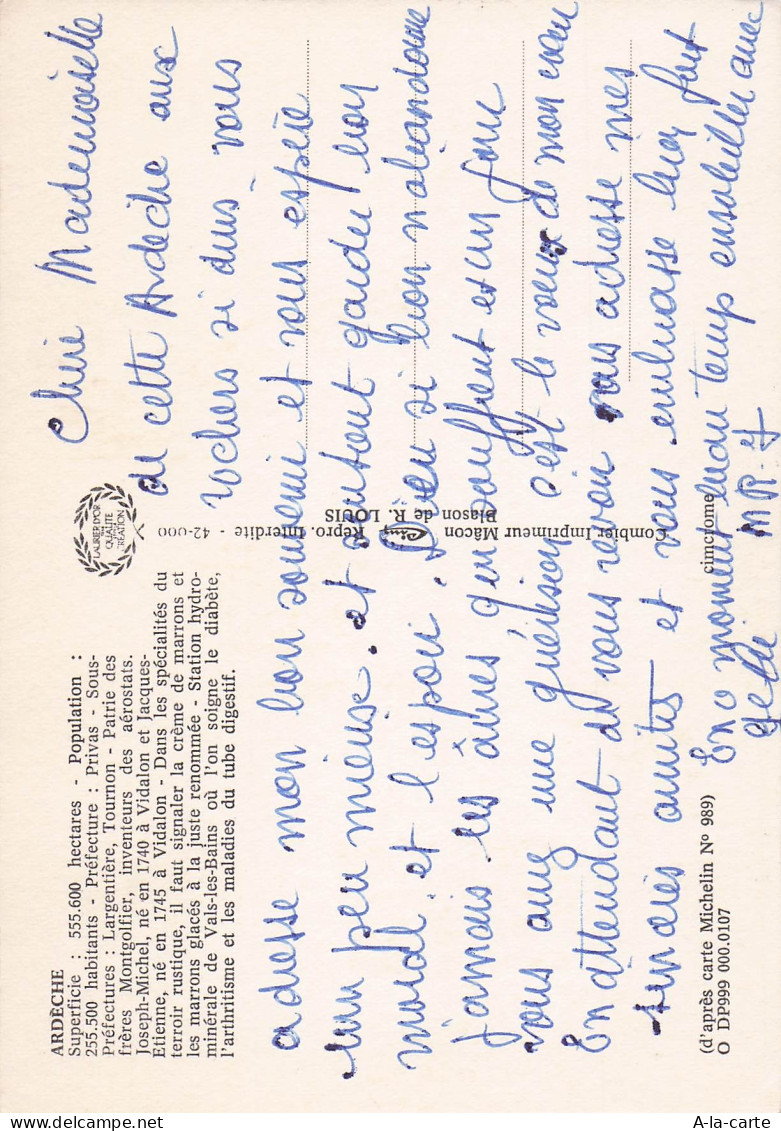 ARDÈCHE
Superficie : 555.600 hectares - Population :
255.500 habitants - Préfecture : Privas - Sous-
Préfectures : Largentière, Tournon - Patrie des
frères Montgolfier, inventeurs des aérostats.
Joseph-Michel, né en 1740 à Vidalon et Jacques-
Etienne, né en 1745 à Vidalon - Dans les spécialités du
terroir rustique, il faut signaler la crème de marrons et
les marrons glacés à la juste renommée - Station hydro-
minérale de Vals-les-Bains où l'on soigne le diabète,
l'arthritisme et les maladies du tube digestif.
LAURIER D'OR
DE LA
QUALITÉ
CRÉATION
Chère Mademoiselle
de cette Ardèche aux
rochers si durs vous
adresse mon bon souvenir et vous espère
un peu mieux. et surtout garder bon
moral et l'espoir. Dieu si bon n'abandonne
jamais les âmes qui souffrent et un jour
vous aurez une guérison c'est le voeux de mon coeur
En attendant de vous revoir vous adresse mes
sincères amitiés et vous embrasse bien fort
En ce moment beau temps ensoleillé avec
gelée M R J
Combier Imprimeur Mâcon Cim Repro. Interdite - 42-000
Blason de R. LOUIS
(d'après carte Michelin N° 989) cimcrome
O DP999 000.0107
A-la-carte